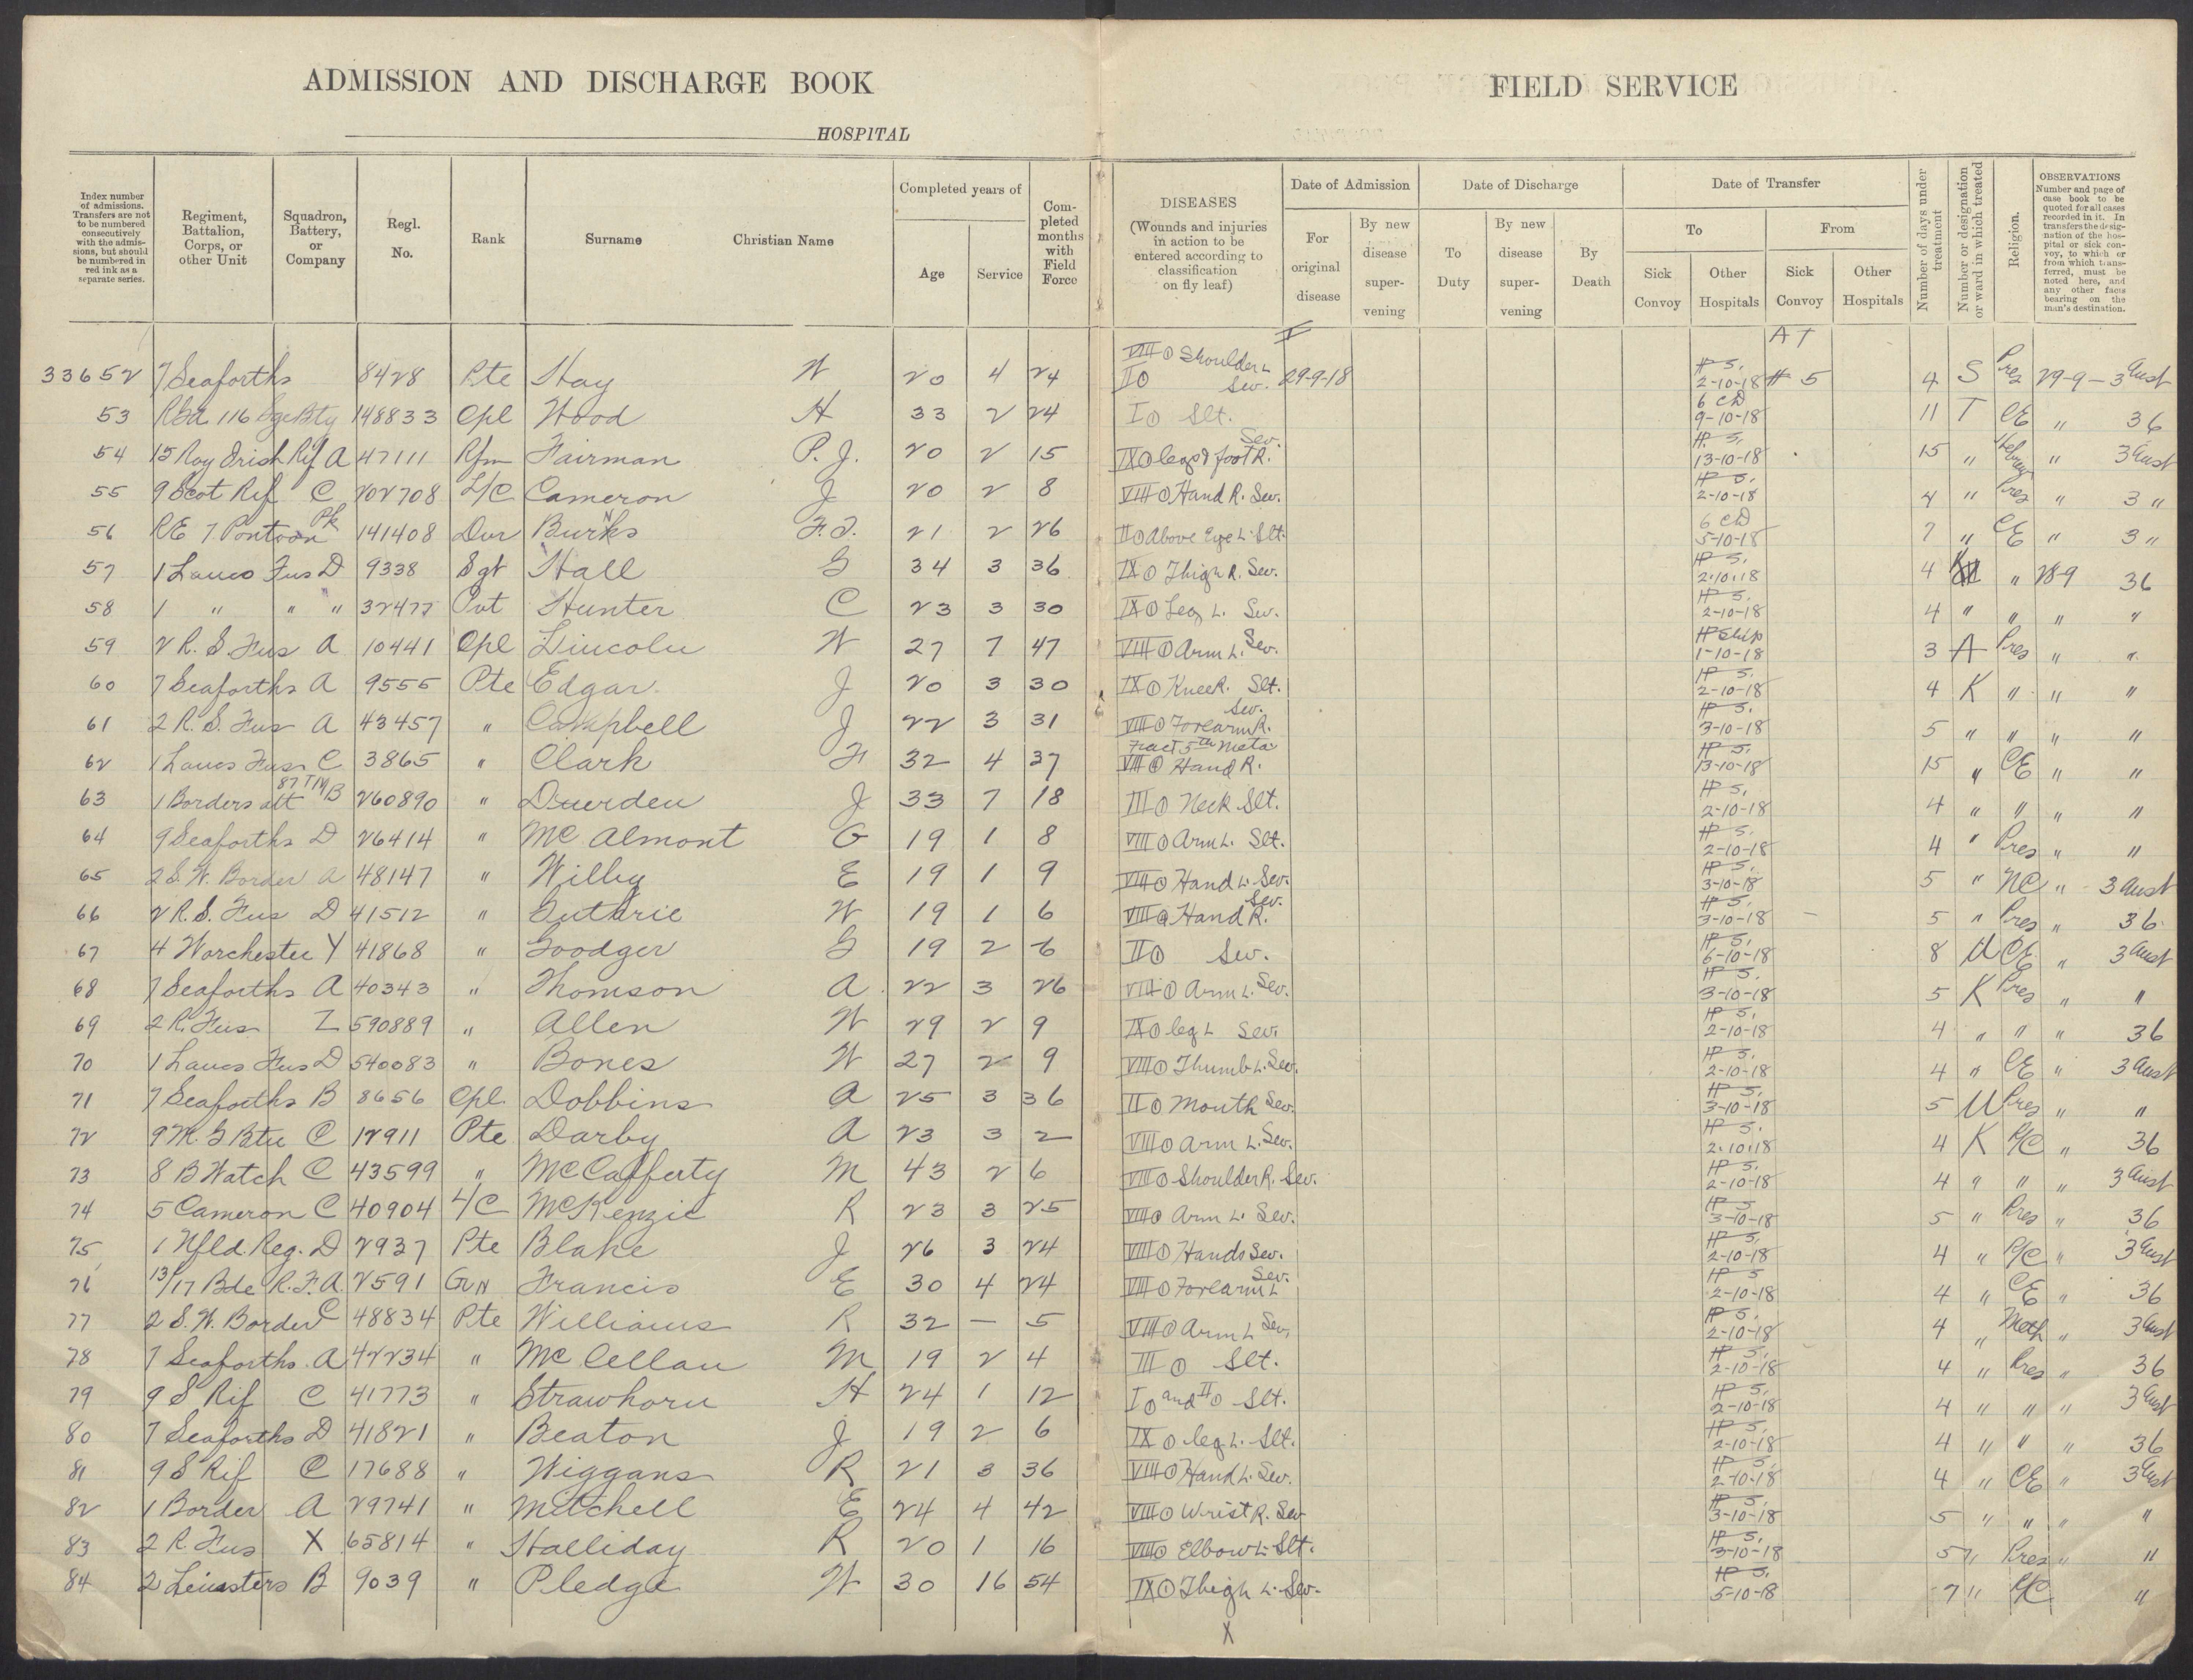 ADMISSION AND DISCHARGE BOOK
FIELD SERVICE
HOSPITAL
Index number of admissions. Transfers are not to be numbered consecutively with the admissions, but should be numbered in red ink as a separate series.
Regiment, Battalion, Corps, or other Unit
Squadron, Battery, or Company
Regl. No.
Rank
Surname
Christian Name
Completed years of
Age
Service
Completed months with Field Force
DISEASES (Wounds and injuries in action to be entered according to classification on fly leaf)
Date of Admission
For original disease
By new disease supervening
Date of Discharge
To Duty
By new disease supervening
By Death
Date of Transfer
To
Sick Convoy
Other Hospitals
From
Sick Convoy
Other Hospitals
Number of days under treatment
Number or designation or ward in which treated
Religion.
OBSERVATIONS Number and page of case book to be quoted for all cases recorded in it. In transfers the designation of the hospital or sick convoy, to which or from which transferred, must be noted here, and any other facts bearing on the man's destination.
33652 7 Seaforths 8428 Pte Hay W 20 4 24 VIII ① Shoulder L II ① Sev. 29-9-18 H S. 2-10-18 AT # 5 4 S Pres 29-9- 3 Aust
53 RGA 116 Sge Bty 148833 Cpl Wood H 33 2 24 I ① Slt. 6 CD 9-10-18 11 T CE " 36
54 15 Roy Irish Rif A 47111 Rfm Fairman P. J. 20 2 15 IX ① legs & foot R. Sev. H S. 13-10-18 15 " " 3 Aust
55 9 Scot Rif C 202708 L/C Cameron J 20 2 8 VIII ① Hand R. Sev. H S. 2-10-18 4 " Pres " 3 "
56 RE 7 Pontoon Pk 141408 Dvr Burks F. J. 21 2 26 II ① Above Eye L. Slt. 6 CD 5-10-18 7 " CE " 3 "
57 1 Lancs Fus D 9338 Sgt Hall G 34 3 36 IX ① Thigh R. Sev. H S. 2.10.18 4 K " 28-9 36
58 1 " " " 32477 Pvt Hunter C 23 3 30 IX ① Leg L. Sev. H S. 2-10-18 4 " " " "
59 2 R. S. Fus A 10441 Cpl Lincoln W 27 7 47 VIII ① Arm L. Sev. H Ship 1-10-18 3 A Pres " "
60 7 Seaforths A 9555 Pte Edgar J 20 3 30 IX ① Knee R. Slt. H S. 2-10-18 4 K " " "
61 2 R. S. Fus A 43457 " Campbell J 22 3 31 VIII ① Forearm R. Sev. H S. 3-10-18 5 " " " "
62 1 Lancs Fus C 3865 " Clark F 32 4 37 Fract 5th Meta VIII ④ Hand R. H S. 13-10-18 15 " CE " "
63 1 Borders att 87 TMB 260890 " Duerden J 33 7 18 III ① Neck Slt. H S. 2-10-18 4 " " " "
64 9 Seaforths D 26414 " McAlmont G 19 1 8 VIII ① Arm L. Slt. H S. 2-10-18 4 " Pres " "
65 2 S. W. Border A 48147 " Wilby E 19 1 9 VIII ① Hand L. Sev. H S. 3-10-18 5 " NC " 3 Aust
66 2 R. S. Fus D 41512 " Guthrie W 19 1 6 VIII ④ Hand R. Sev. H S. 3-10-18 5 " Pres " 36
67 4 Worchester Y 41868 " Goodger G 19 2 6 II ① Sev. H S. 6-10-18 8 U CE " 3 Aust
68 7 Seaforths A 40343 " Thomson A 22 3 26 VIII ① Arm L. Sev. H S. 3-10-18 5 K Pres " "
69 2 R. Fus Z 590889 " Allen W 29 2 9 IX ① leg L Sev. H S. 2-10-18 4 " " " 36
70 1 Lancs Fus D 540083 " Bones W 27 2 9 VIII ① Thumb L. Sev. H S. 2-10-18 4 " CE " 3 Aust
71 7 Seaforths B 8656 Cpl Dobbins A 25 3 36 II ① Mouth Sev. H S. 3-10-18 5 U Pres " "
72 9 M. G Btn C 12911 Pte Darby A 23 3 2 VIII ① Arm L. Sev. H S. 2.10.18 4 K R/C " 36
73 8 B Watch C 43599 " McCafferty M 43 2 6 VIII ① Shoulder R. Sev. H S. 2-10-18 4 " " " 3 Aust
74 5 Cameron C 40904 L/C McKenzie R 23 3 25 VIII ① Arm L. Sev. H S. 3-10-18 5 " Pres " 36
75 1 Nfld. Reg. D 2937 Pte Blake J 26 3 24 VIII ① Hands Sev. H S. 2-10-18 4 " R/C " 3 Aust
76 13/17 Bde R.F.A. 2591 Gun Francis E 30 4 24 VIII ① Forearm L Sev. H S 2-10-18 4 " CE " 36
77 2 S. W. Border C 48834 Pte Williams R 32 — 5 VIII ① Arm L Sev. H S. 2-10-18 4 " Meth " 3 Aust
78 7 Seaforths A 42234 " McClellan M 19 2 4 III ① Slt. H S. 2-10-18 4 " Pres " 36
79 9 S Rif C 41773 " Strawhorn H 24 1 12 I ① and II ① Slt. H S. 2-10-18 4 " " " 3 Aust
80 7 Seaforths D 41821 " Beaton J 19 2 6 IX ① leg L. Slt. H S. 2-10-18 4 " " " 36
81 9 S Rif C 17688 " Wiggans R 21 3 36 VIII ① Hand L. Sev. H S. 2-10-18 4 " CE " 3 Aust
82 1 Border A 29741 " Mitchell E 24 4 42 VIII ① Wrist R. Sev H S. 3-10-18 5 " " " "
83 2 R Fus X 65814 " Halliday R 20 1 16 VIII ① Elbow L. Slt. H S. 3-10-18 5 " Pres " "
84 2 Leinsters B 9039 " Pledge W 30 16 54 IX ① Thigh L. Sev. H S. 5-10-18 7 " R/C "
X